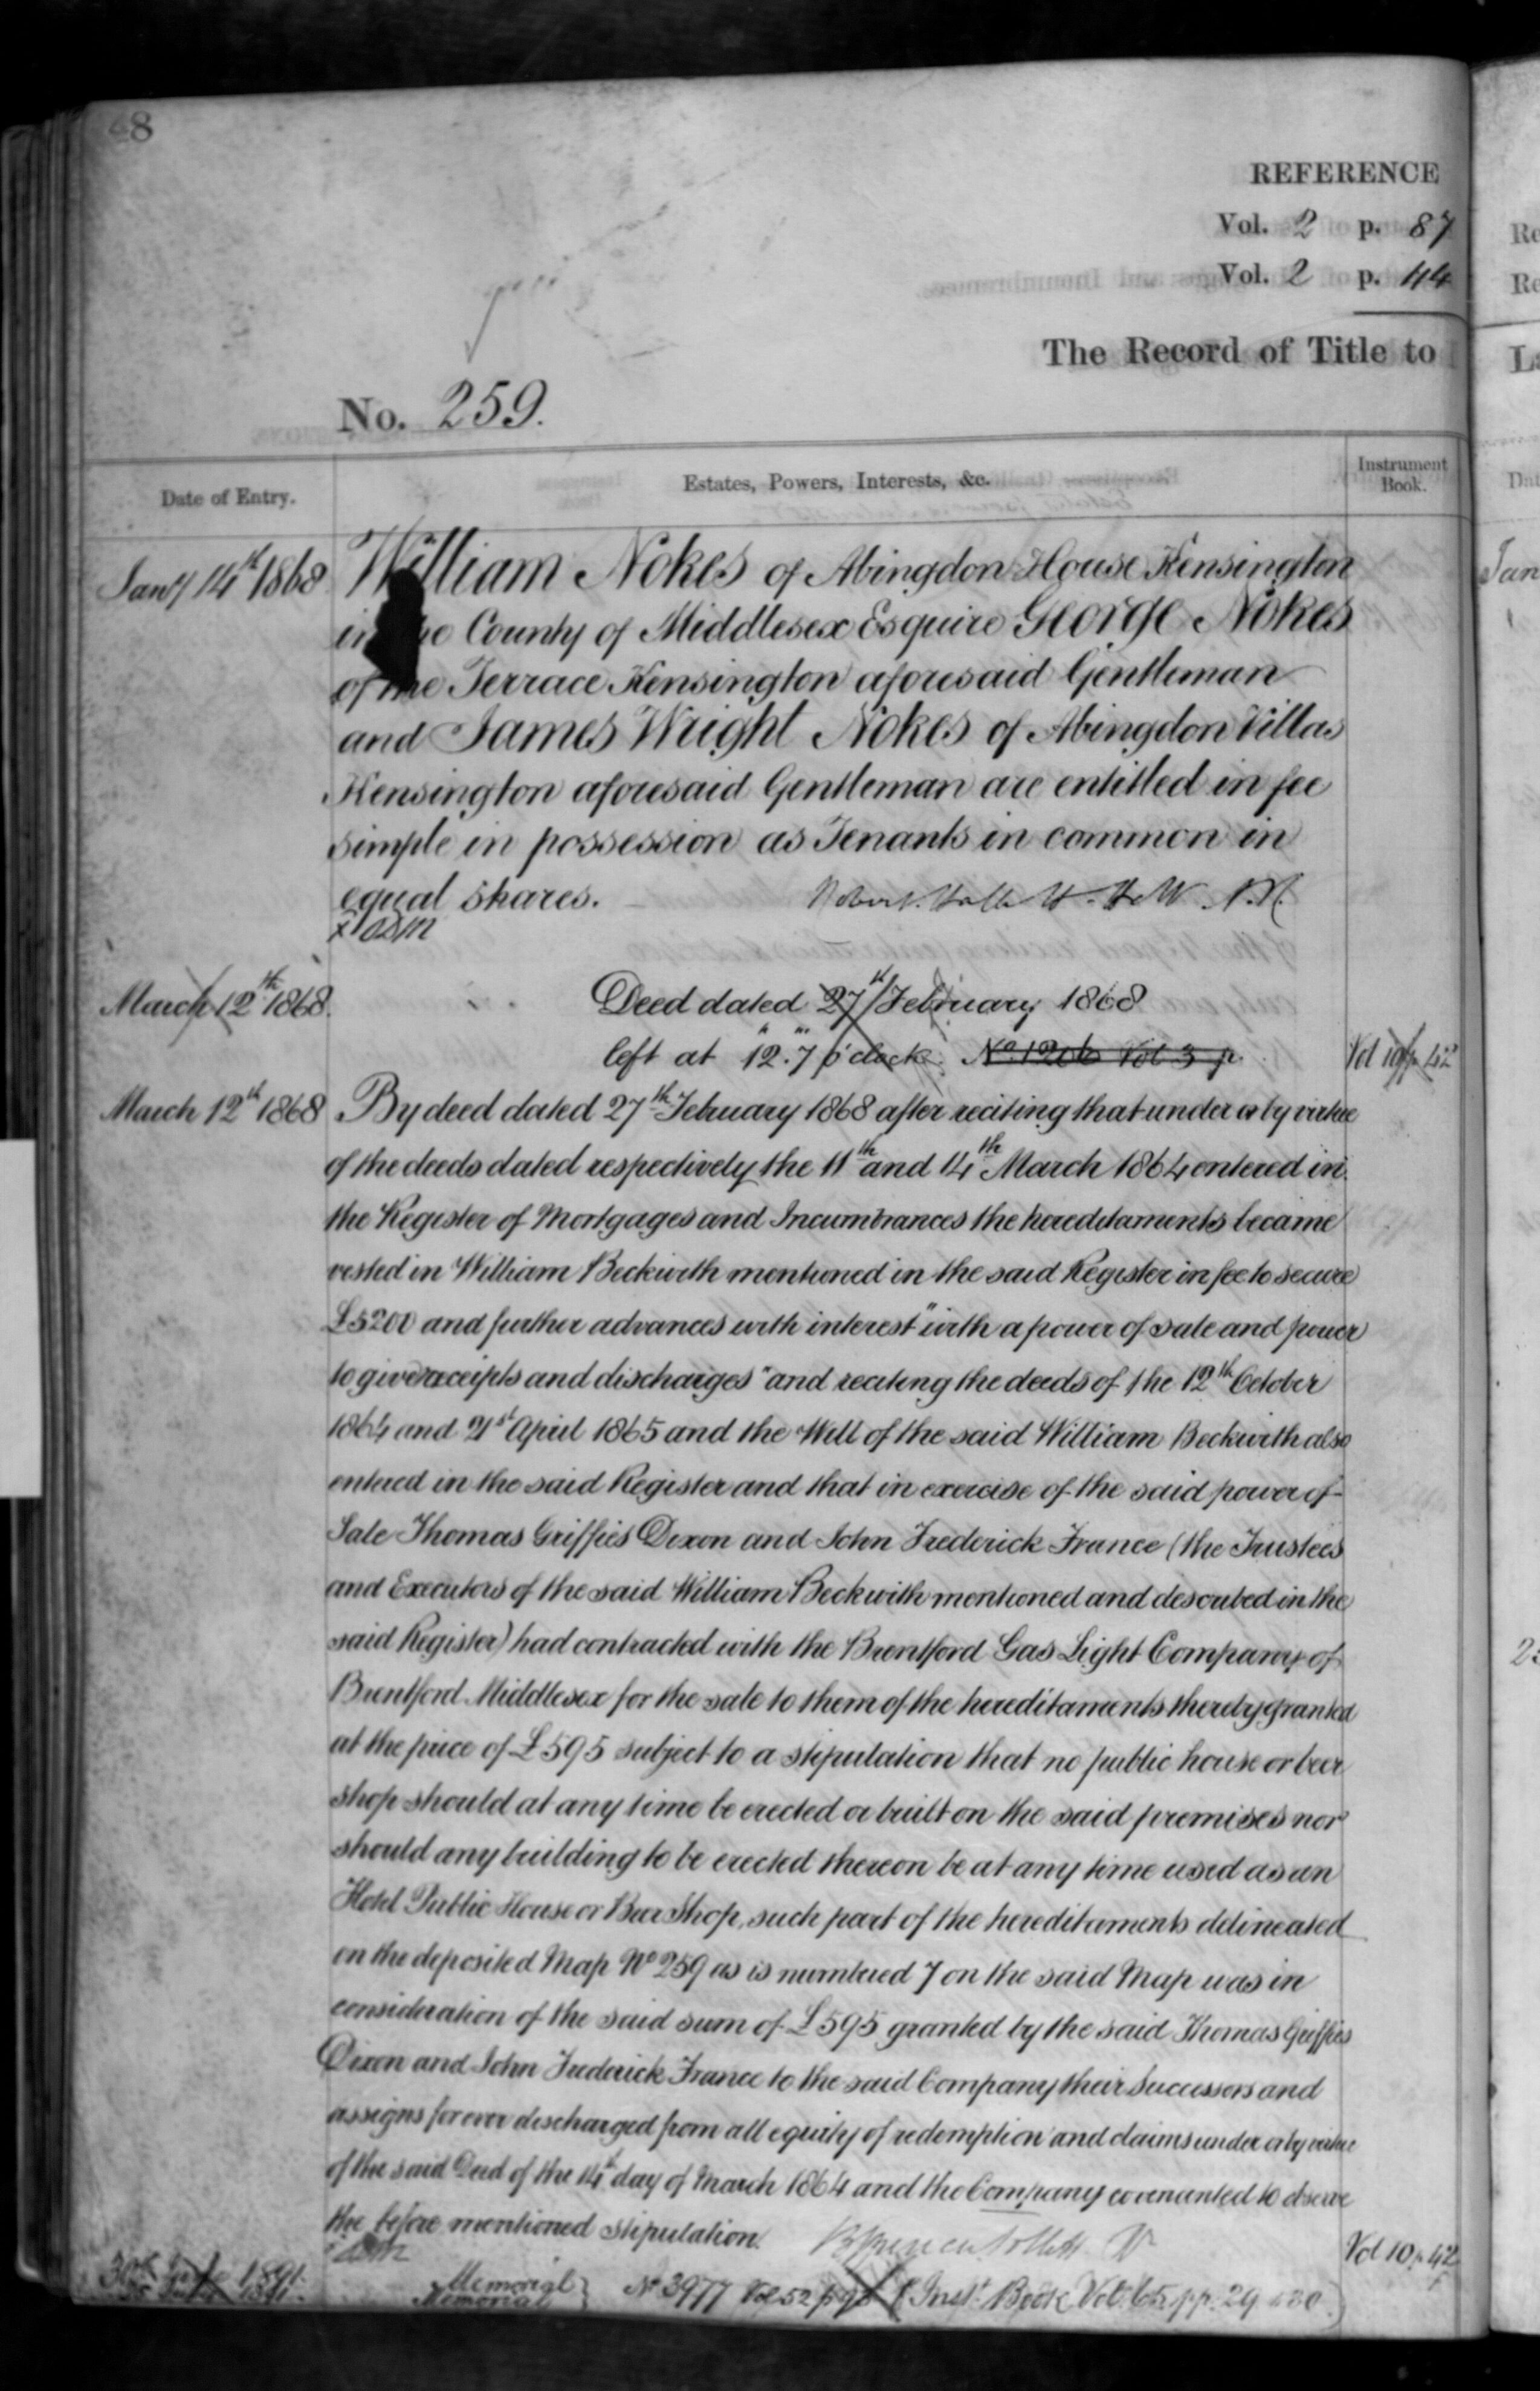 48
REFERENCE
Vol. 2 p. 87
Vol. 2 p. 44
The Record of Title to
No. 259.
Date of Entry.
Estates, Powers, Interests, &c.
Instrument Book.
Jany 14th 1868
William Nokes of Abingdon House Kensington
in the County of Middlesex Esquire George Nokes
of the Terrace Kensington aforesaid Gentleman
and James Wright Nokes of Abingdon Villas
Kensington aforesaid Gentleman are entitled in fee
simple in possession as Tenants in common in
equal shares.
March 12th 1868.
Deed dated 27th February 1868
left at 12.7 o'clock. No 1206 Vol 3 p.
Vol 10 p 42
March 12th 1868
By deed dated 27th February 1868 after reciting that under or by virtue
of the deeds dated respectively the 11th and 14th March 1864 entered in
the Register of Mortgages and Incumbrances the hereditaments became
vested in William Beckwith mentioned in the said Register in fee to secure
£5200 and further advances with interest "with a power of sale and power
to give receipts and discharges" and reciting the deeds of the 12th October
1864 and 21st April 1865 and the Will of the said William Beckwith also
entered in the said Register and that in exercise of the said power of
Sale Thomas Griffies Dixon and John Frederick France (the Trustees
and Executors of the said William Beckwith mentioned and described in the
said Register) had contracted with the Brentford Gas Light Company of
Brentford Middlesex for the sale to them of the hereditaments thereby granted
at the price of £595 subject to a stipulation that no public house or beer
shop should at any time be erected or built on the said premises nor
should any building to be erected thereon be at any time used as an
Hotel Public House or Beer Shop, such part of the hereditaments delineated
on the deposited Map No 259 as is numbered 7 on the said Map was in
consideration of the said sum of £595 granted by the said Thomas Griffies
Dixon and John Frederick France to the said Company their Successors and
assigns for ever discharged from all equity of redemption and claims under or by virtue
of the said Deed of the 14th day of March 1864 and the Company covenanted to observe
the before mentioned stipulation.
Vol 10 p 42
30th 1891.
Memorial} No 3977 Vol 52 p (Inst. Book Vol. 65 pp. 29 & 30.)